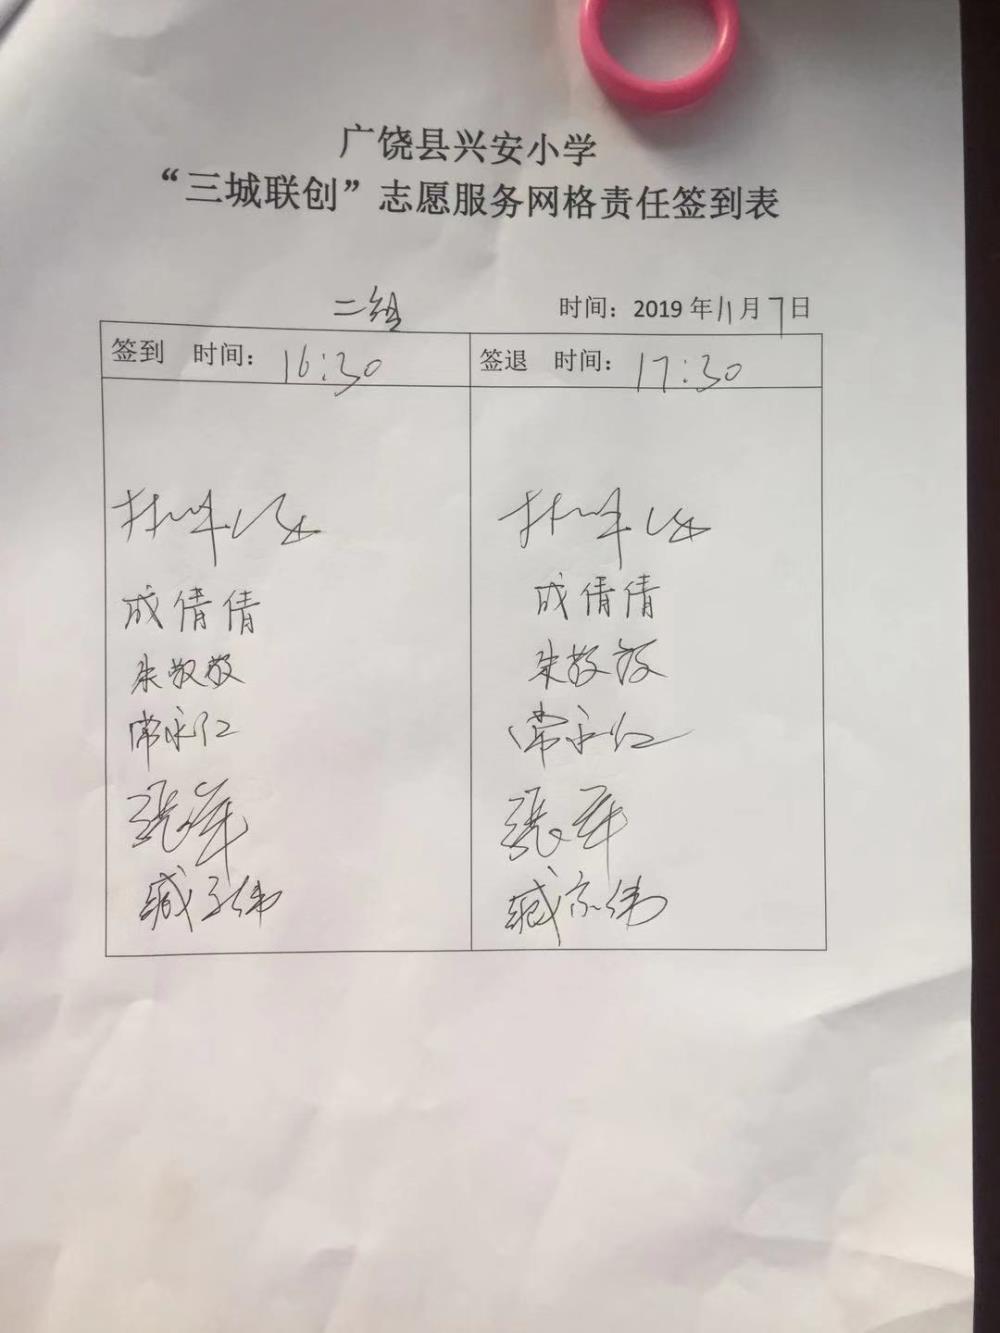 广饶县兴安小学
“三城联创”志愿服务网格责任签到表
二组 时间：2019年11月7日
签到 时间：16:30 签退 时间：17:30
成倩倩 成倩倩
朱敬敬 朱敬敬
常永仁 常永仁
张军 张军
臧京伟 臧京伟